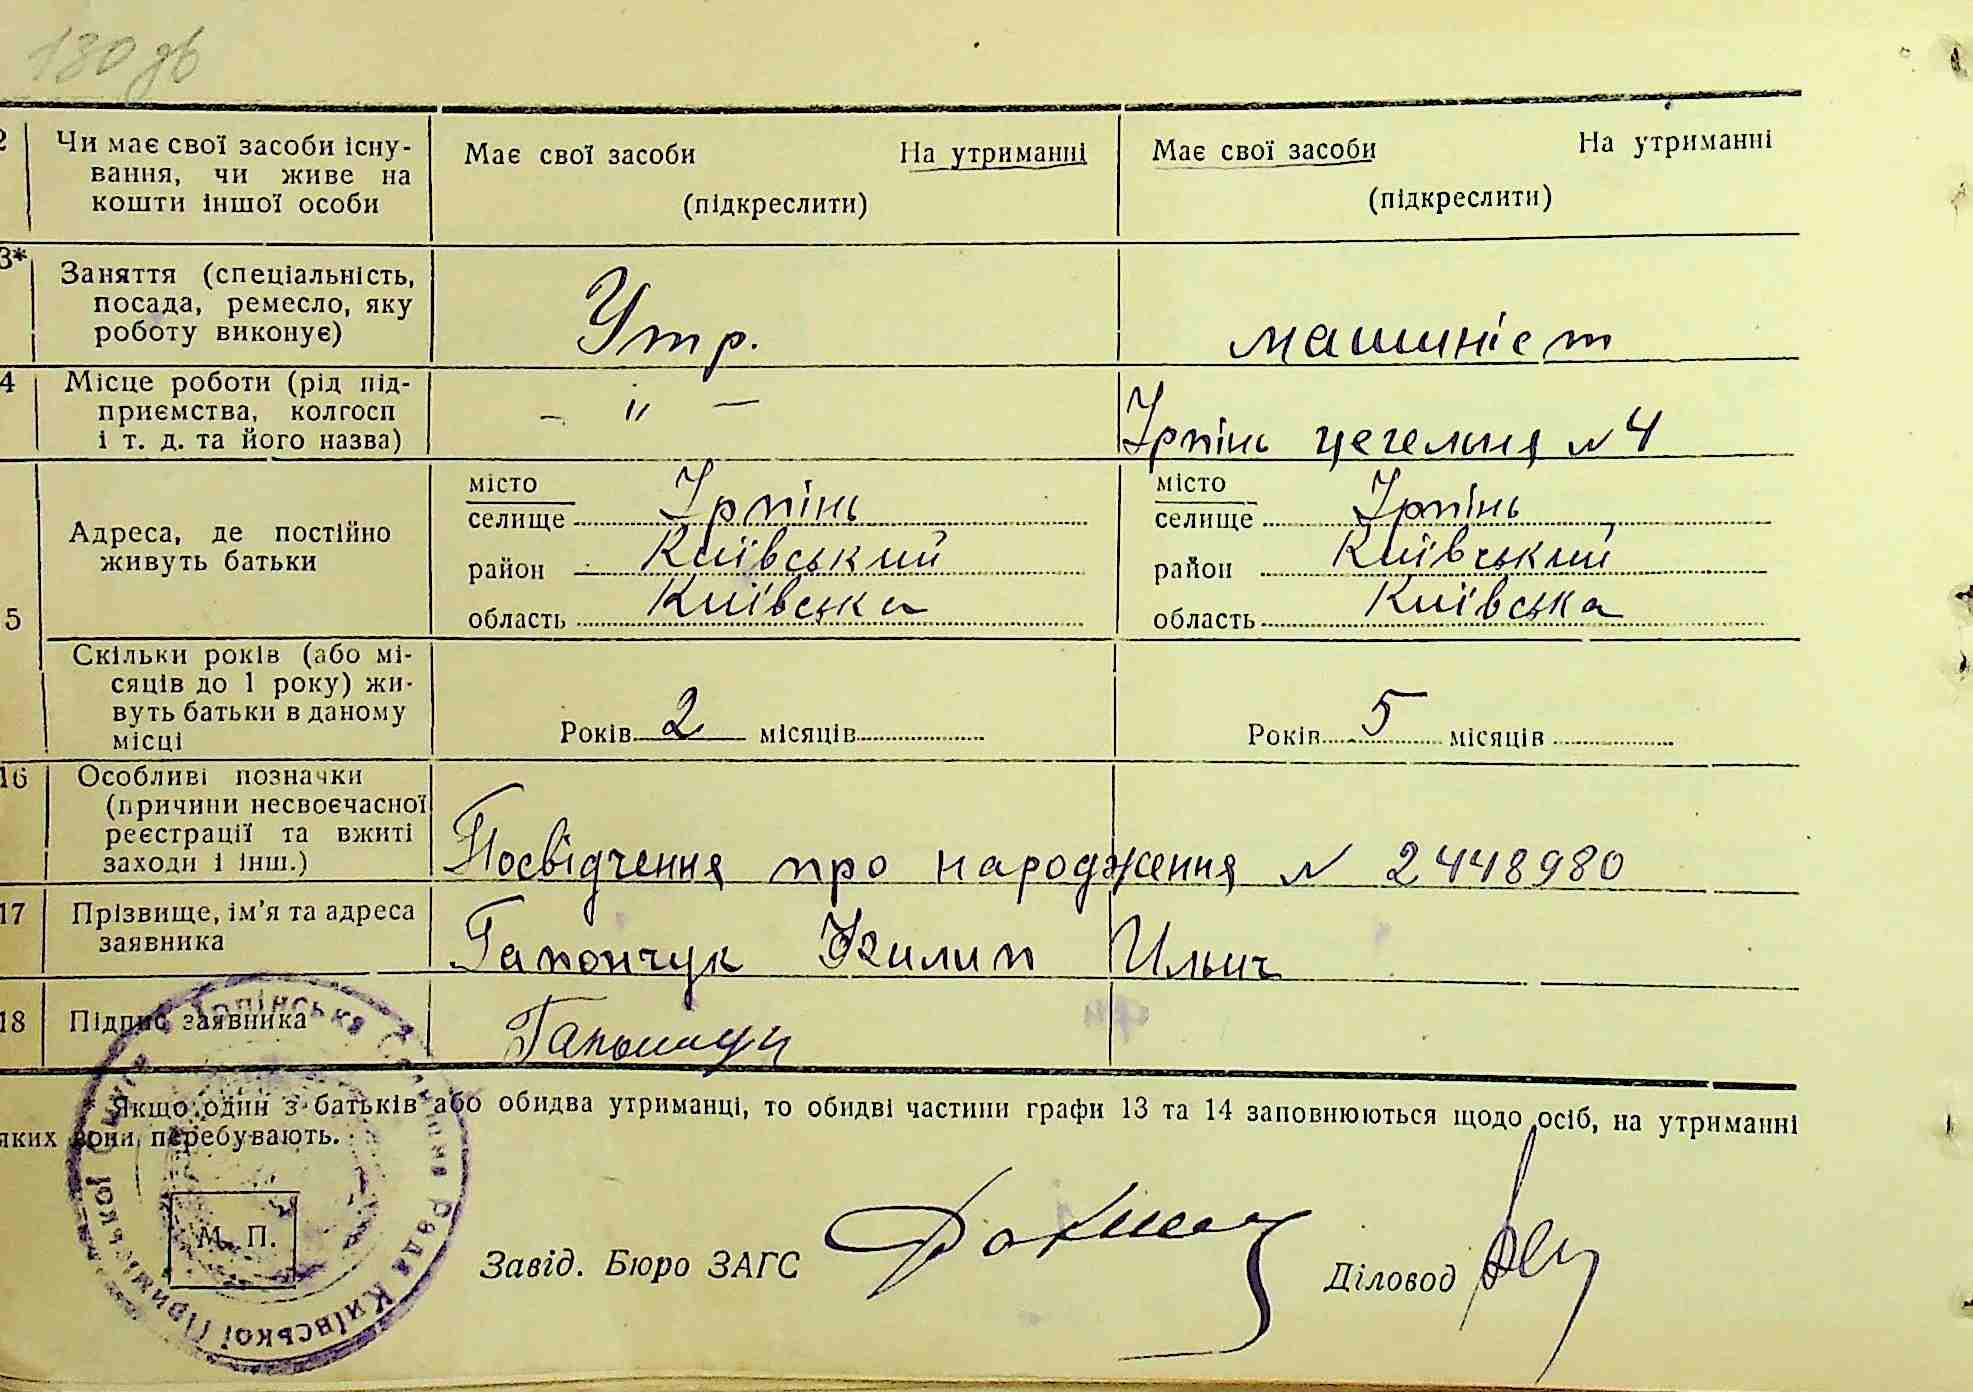 130 зв
2 Чи має свої засоби існу-
вання, чи живе на
кошти іншої особи
Має свої засоби На утриманні
(підкреслити)
Має свої засоби На утриманні
(підкреслити)
3* Заняття (спеціальність,
посада, ремесло, яку
роботу виконує)
Утр.
машиніст
4 Місце роботи (рід під-
приємства, колгосп
і т. д. та його назва)
– " –
Ірпінь цегельня № 4
5 Адреса, де постійно
живуть батьки
місто
селище Ірпінь
район Київський
область Київська
місто
селище Ірпінь
район Київський
область Київська
Скільки років (або мі-
сяців до 1 року) жи-
вуть батьки в даному
місці
Років 2 місяців
Років 5 місяців
16 Особливі позначки
(причини несвоєчасної
реєстрації та вжиті
заходи і інш.)
Посвідчення про народження № 2448980
17 Прізвище, ім'я та адреса
заявника
Гапончук Ильич
18 Підпис заявника
* Якщо один з батьків або обидва утриманці, то обидві частини графи 13 та 14 заповнюються щодо осіб, на утриманні
яких вони перебувають.
М. П.
Завід. Бюро ЗАГС
Діловод
Ірпінська Селищна Рада Київської Приміської